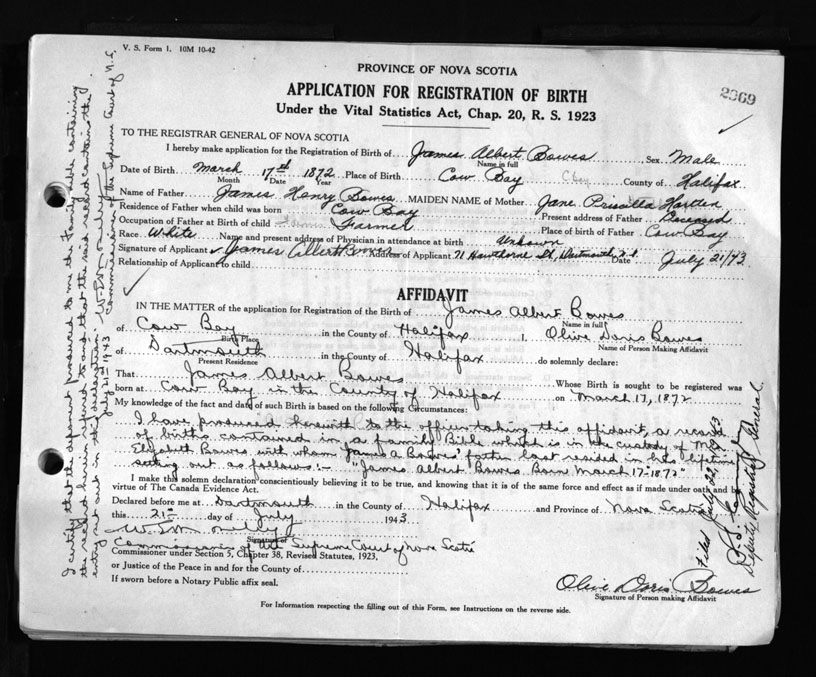 V. S. Form 1. 10M 10-42
PROVINCE OF NOVA SCOTIA
2369
APPLICATION FOR REGISTRATION OF BIRTH
Under the Vital Statistics Act, Chap. 20, R. S. 1923
TO THE REGISTRAR GENERAL OF NOVA SCOTIA
I hereby make application for the Registration of Birth of James Albert Bowes Sex Male
Name in full
Date of Birth March 17th 1872 Place of Birth Cow Bay County of Halifax
Month Date Year
Name of Father James Henry Bowes MAIDEN NAME of Mother Jane Priscilla Hartlen
Residence of Father when child was born Cow Bay Present address of Father Deceased
Occupation of Father at Birth of child Farmer Place of birth of Father Cow Bay
Race White Name and present address of Physician in attendance at birth Unknown
Signature of Applicant James Albert Bowes Address of Applicant 71 Hawthorne St, Dartmouth N.S. Date July 21/43
Relationship of Applicant to child
AFFIDAVIT
IN THE MATTER of the application for Registration of the Birth of James Albert Bowes
Name in full
of Cow Bay in the County of Halifax I, Olive Doris Bowes
Birth Place Name of Person Making Affidavit
of Dartmouth in the County of Halifax do solemnly declare:
Present Residence
That James Albert Bowes Whose Birth is sought to be registered was
born at Cow Bay in the County of Halifax on March 17, 1872
My knowledge of the fact and date of such Birth is based on the following Circumstances:
I have produced herewith to the officer taking this affidavit, a record
of births contained in a family Bible which is in the custody of Mrs
Elizabeth Bowes with whom James A Bowes father last resided in his lifetime
setting out as follows:- "James Albert Bowes Born March 17-1872"
I make this solemn declaration conscientiously believing it to be true, and knowing that it is of the same force and effect as if made under oath and by
virtue of The Canada Evidence Act.
Declared before me at Dartmouth in the County of Halifax and Province of Nova Scotia
this 21st day of July 1943
Signature of
Commissioner of the Supreme Court of Nova Scotia
Commissioner under Section 5, Chapter 38, Revised Statutes, 1923,
or Justice of the Peace in and for the County of
If sworn before a Notary Public affix seal.
Olive Doris Bowes
Signature of Person making Affidavit
For Information respecting the filling out of this Form, see Instructions on the reverse side.
I certify that the deponent produced to me the Family Bible containing
the record herein referred to and that the said record contains the
entry set out in this declaration.
July 21st 1943
Commissioner of the Supreme Court of N.S.
Filed July 22 1943
Deputy Registrar General